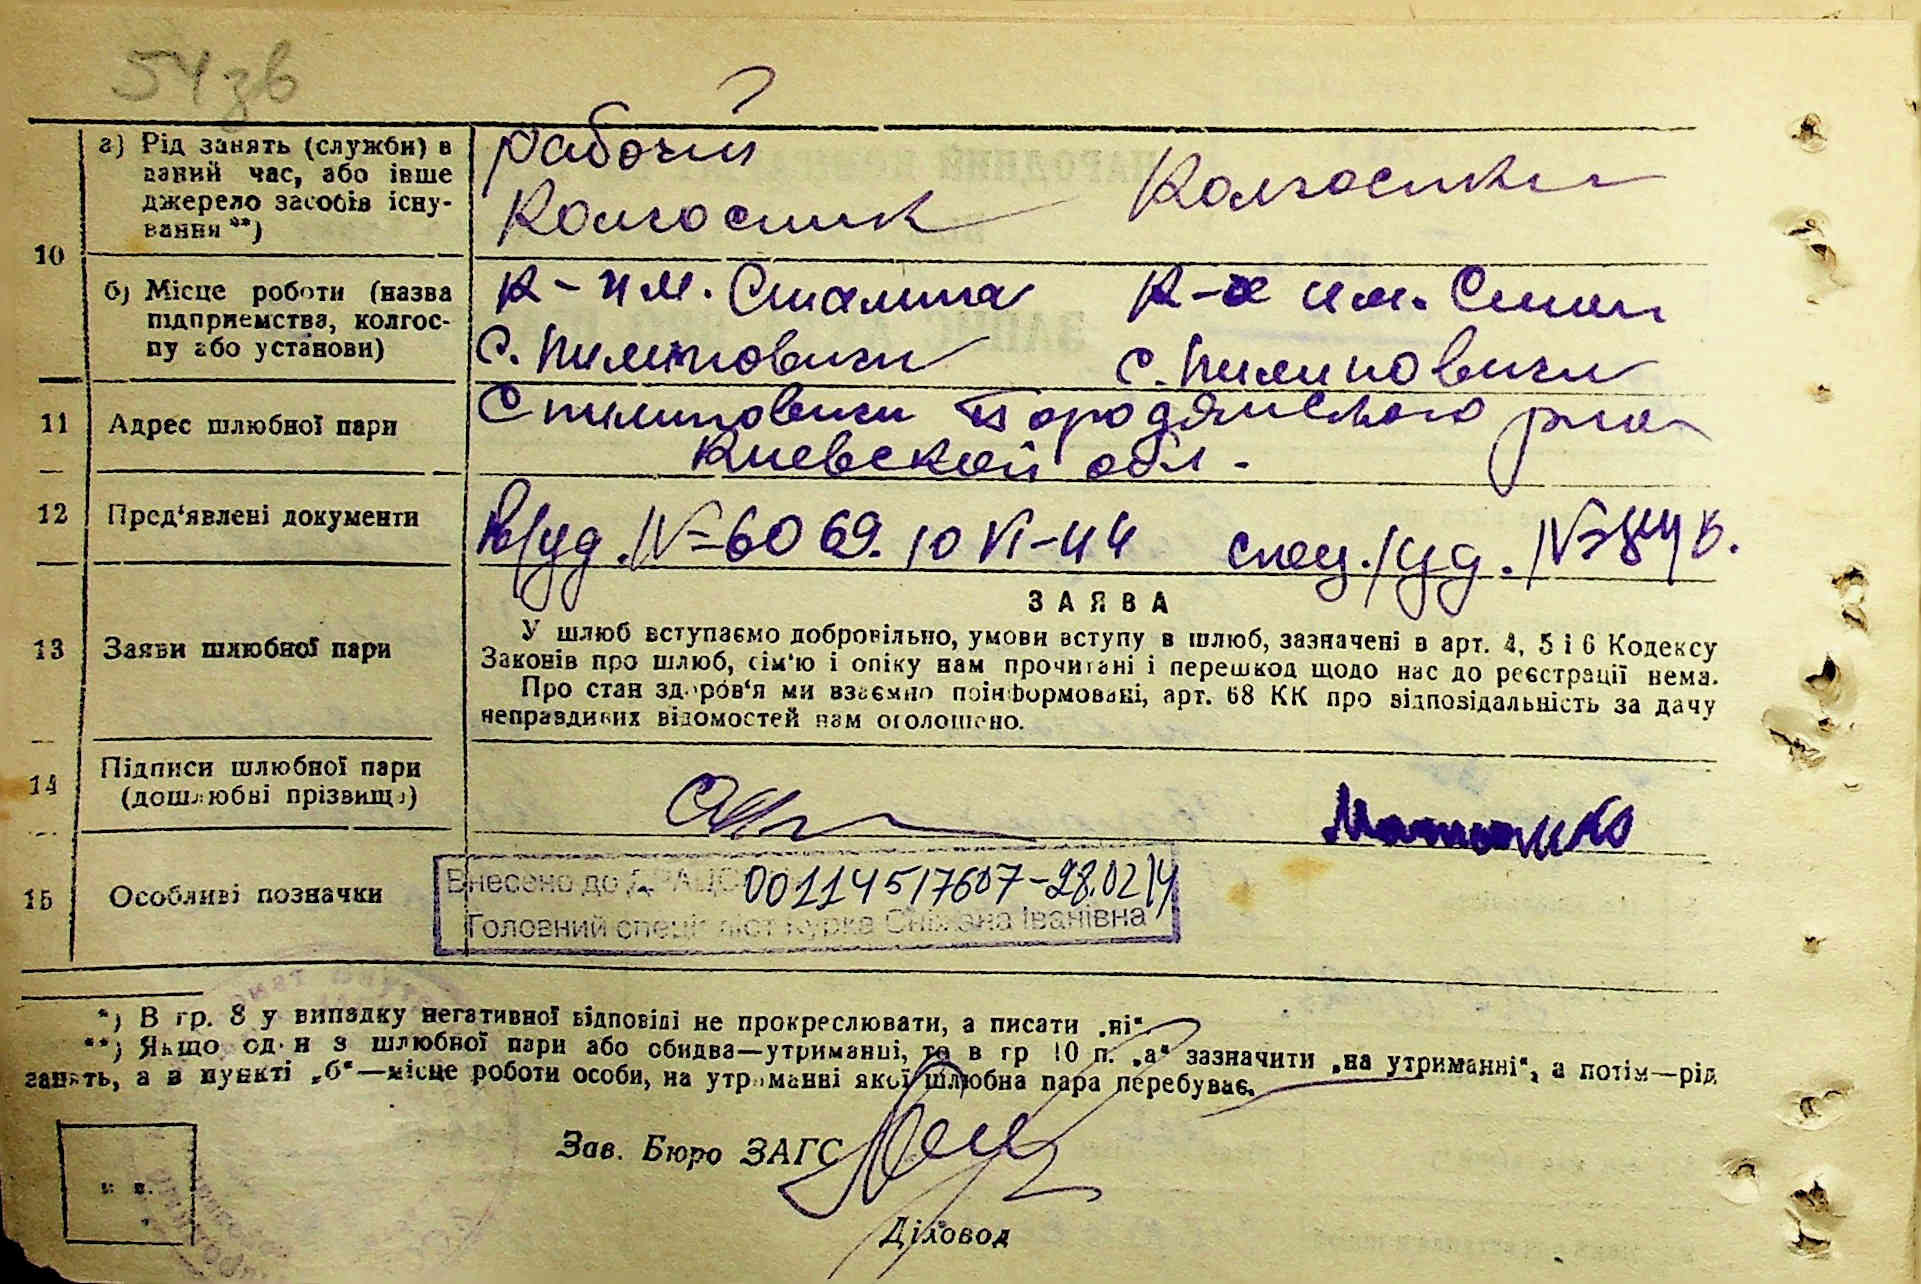 54 зв
10
а) Рід занять (служби) в
даний час, або інше
джерело засобів існу-
вання **)
рабочий
Колгоспник
Колгоспниця
б) Місце роботи (назва
підприємства, колгос-
пу або установи)
К- им. Сталина
с. Пилиповичи
К-з им. Стали
с. Пилиповичи
11
Адрес шлюбної пари
С Пилиповичи Бородянского р-на
Киевской обл.
12
Пред'явлені документи
В/уд. №=6069. 10 VI-44
спец./уд. №
13
Заяви шлюбної пари
ЗАЯВА
У шлюб вступаємо добровільно, умови вступу в шлюб, зазначені в арт. 4, 5 і 6 Кодексу
Законів про шлюб, сім'ю і опіку нам прочитані і перешкод щодо нас до реєстрації нема.
Про стан здоров'я ми взаємно поінформовані, арт. 68 КК про відповідальність за дачу
неправдивих відомостей нам оголошено.
14
Підписи шлюбної пари
(дошлюбні прізвища)
15
Особливі позначки
Внесено до ДРАЦС 00114517607-28.02.14
Головний спеціаліст Курка Сніжана Іванівна
*) В гр. 8 у випадку негативної відповіді не прокреслювати, а писати „ні“.
**) Якщо один з шлюбної пари або обидва—утриманці, то в гр 10 п. „а“ зазначити „на утриманні“, а потім—рід
занять, а в пункті „б“—місце роботи особи, на утриманні якої шлюбна пара перебуває.
Зав. Бюро ЗАГС
Діловод
м. п.